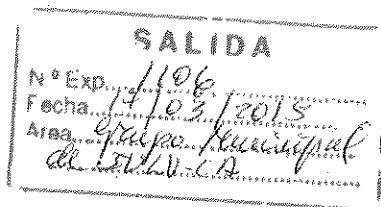 SALIDA
Nº Exp. 1106
Fecha 17/03/2015
Area Grupo Municipal
de IULV-CA